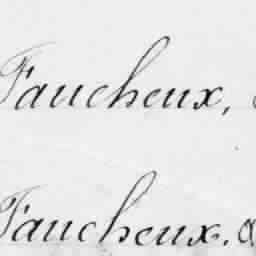 Faucheux,
Faucheux.